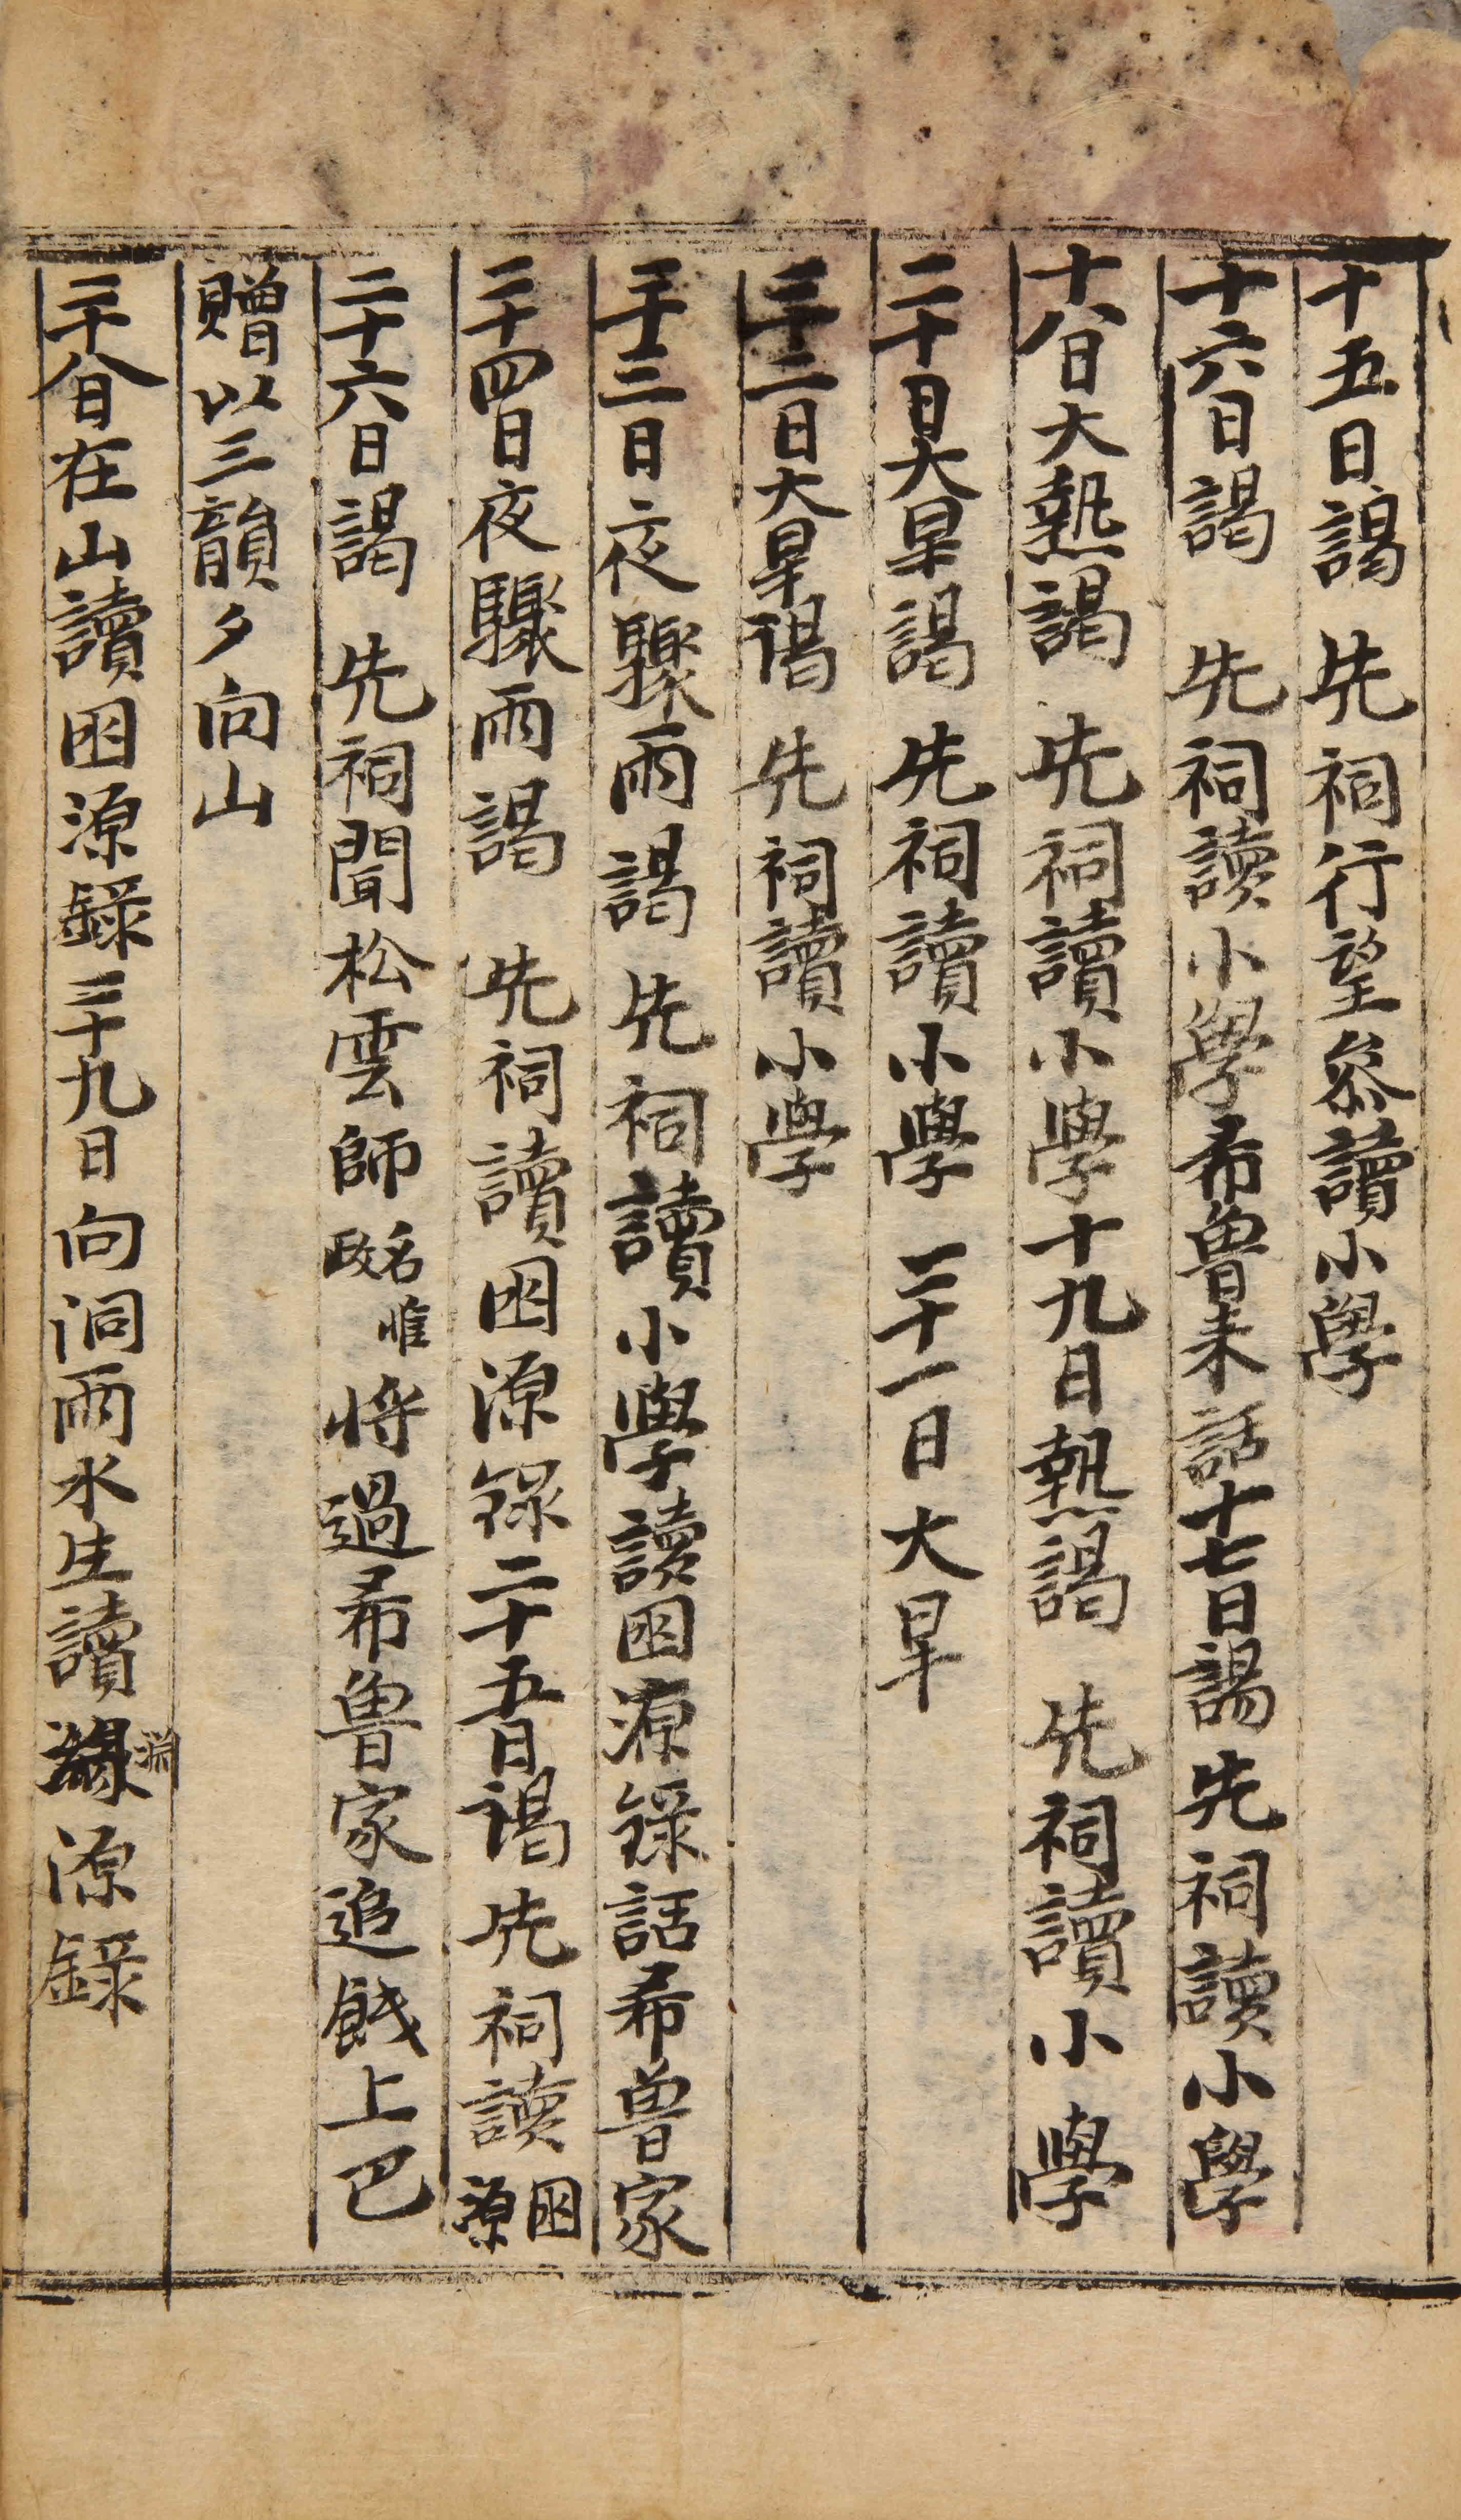 十五日謁 先祠行望參讀小學
十六日謁 先祠讀小學希魯來話十七日謁先祠讀小學
十八日大熱謁 先祠讀小學十九日熱謁 先祠讀小學
二十日大旱謁 先祠讀小學 二十一日大旱
二十二日大旱謁 先祠讀小學
二十三日夜驟雨謁 先祠讀小學讀囦源錄話希魯家
二十四日夜驟雨謁 先祠讀囦源錄二十五日謁 先祠讀囦源
二十六日謁 先祠聞松雲師名惟政將過希魯家追餞上巴
贈以三韻夕向山
二十八日在山讀囦源錄二十九日向洞雨水生讀淵源錄